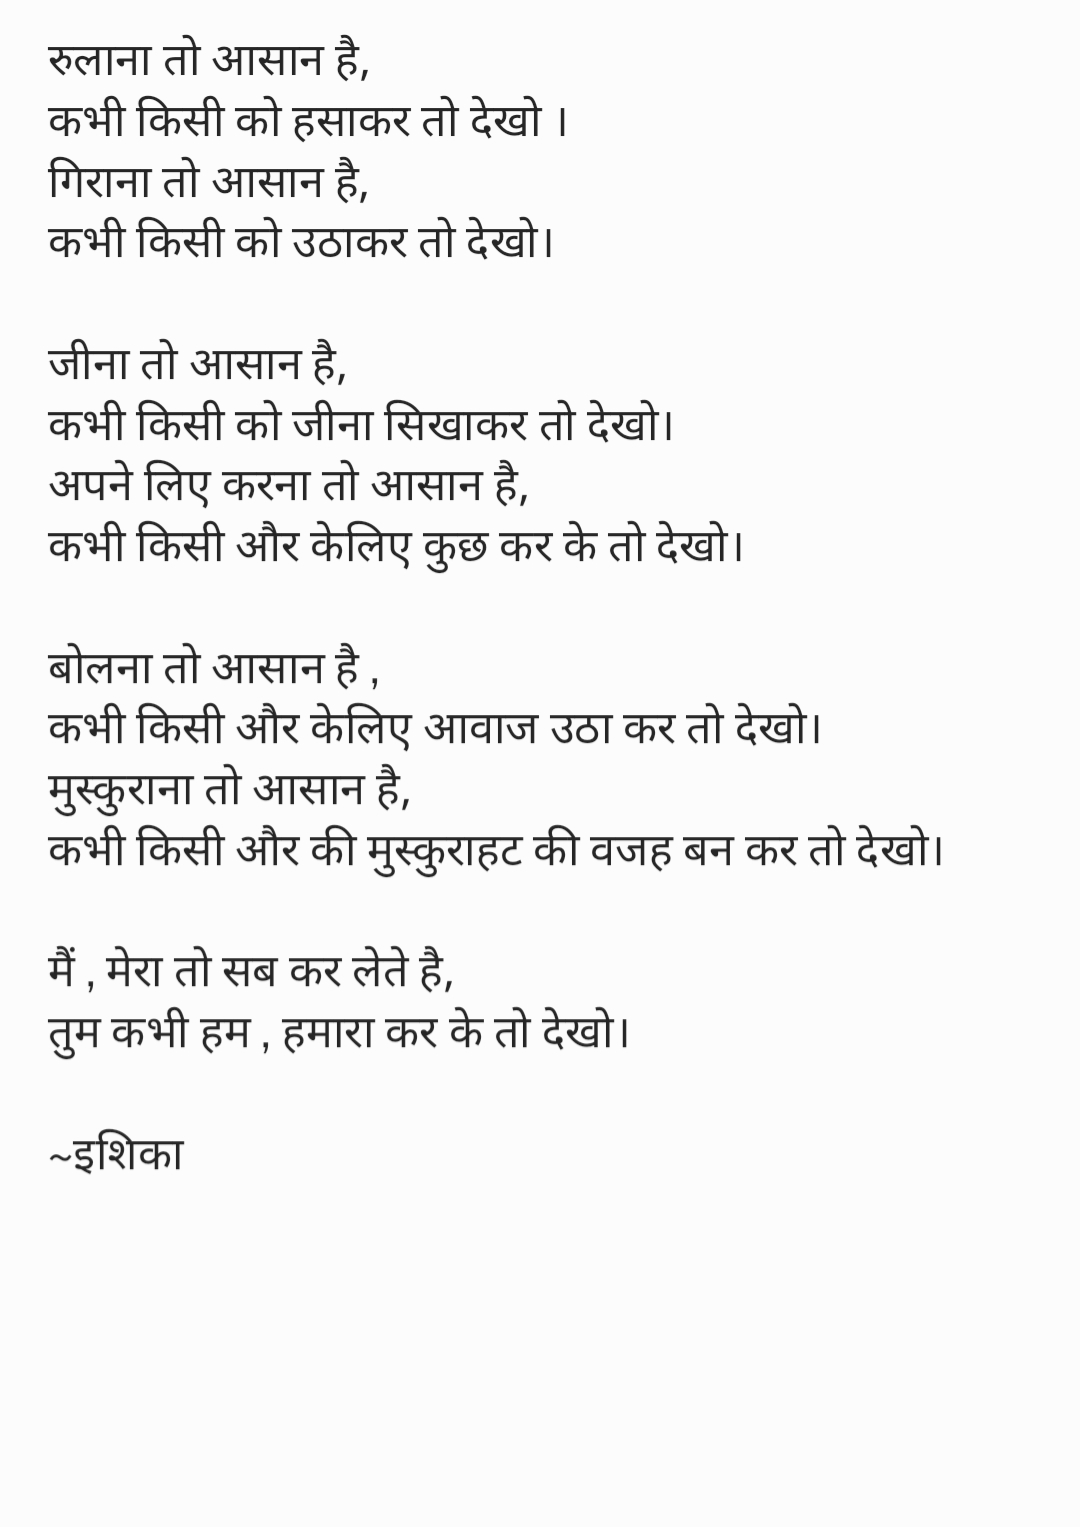 रुलाना तो आसान है,
कभी किसी को हसाकर तो देखो ।
गिराना तो आसान है,
कभी किसी को उठाकर तो देखो।
जीना तो आसान है,
कभी किसी को जीना सिखाकर तो देखो।
अपने लिए करना तो आसान है,
कभी किसी और केलिए कुछ कर के तो देखो।
बोलना तो आसान है ,
कभी किसी और केलिए आवाज उठा कर तो देखो।
मुस्कुराना तो आसान है,
कभी किसी और की मुस्कुराहट की वजह बन कर तो देखो।
मैं , मेरा तो सब कर लेते है,
तुम कभी हम , हमारा कर के तो देखो।
~इशिका